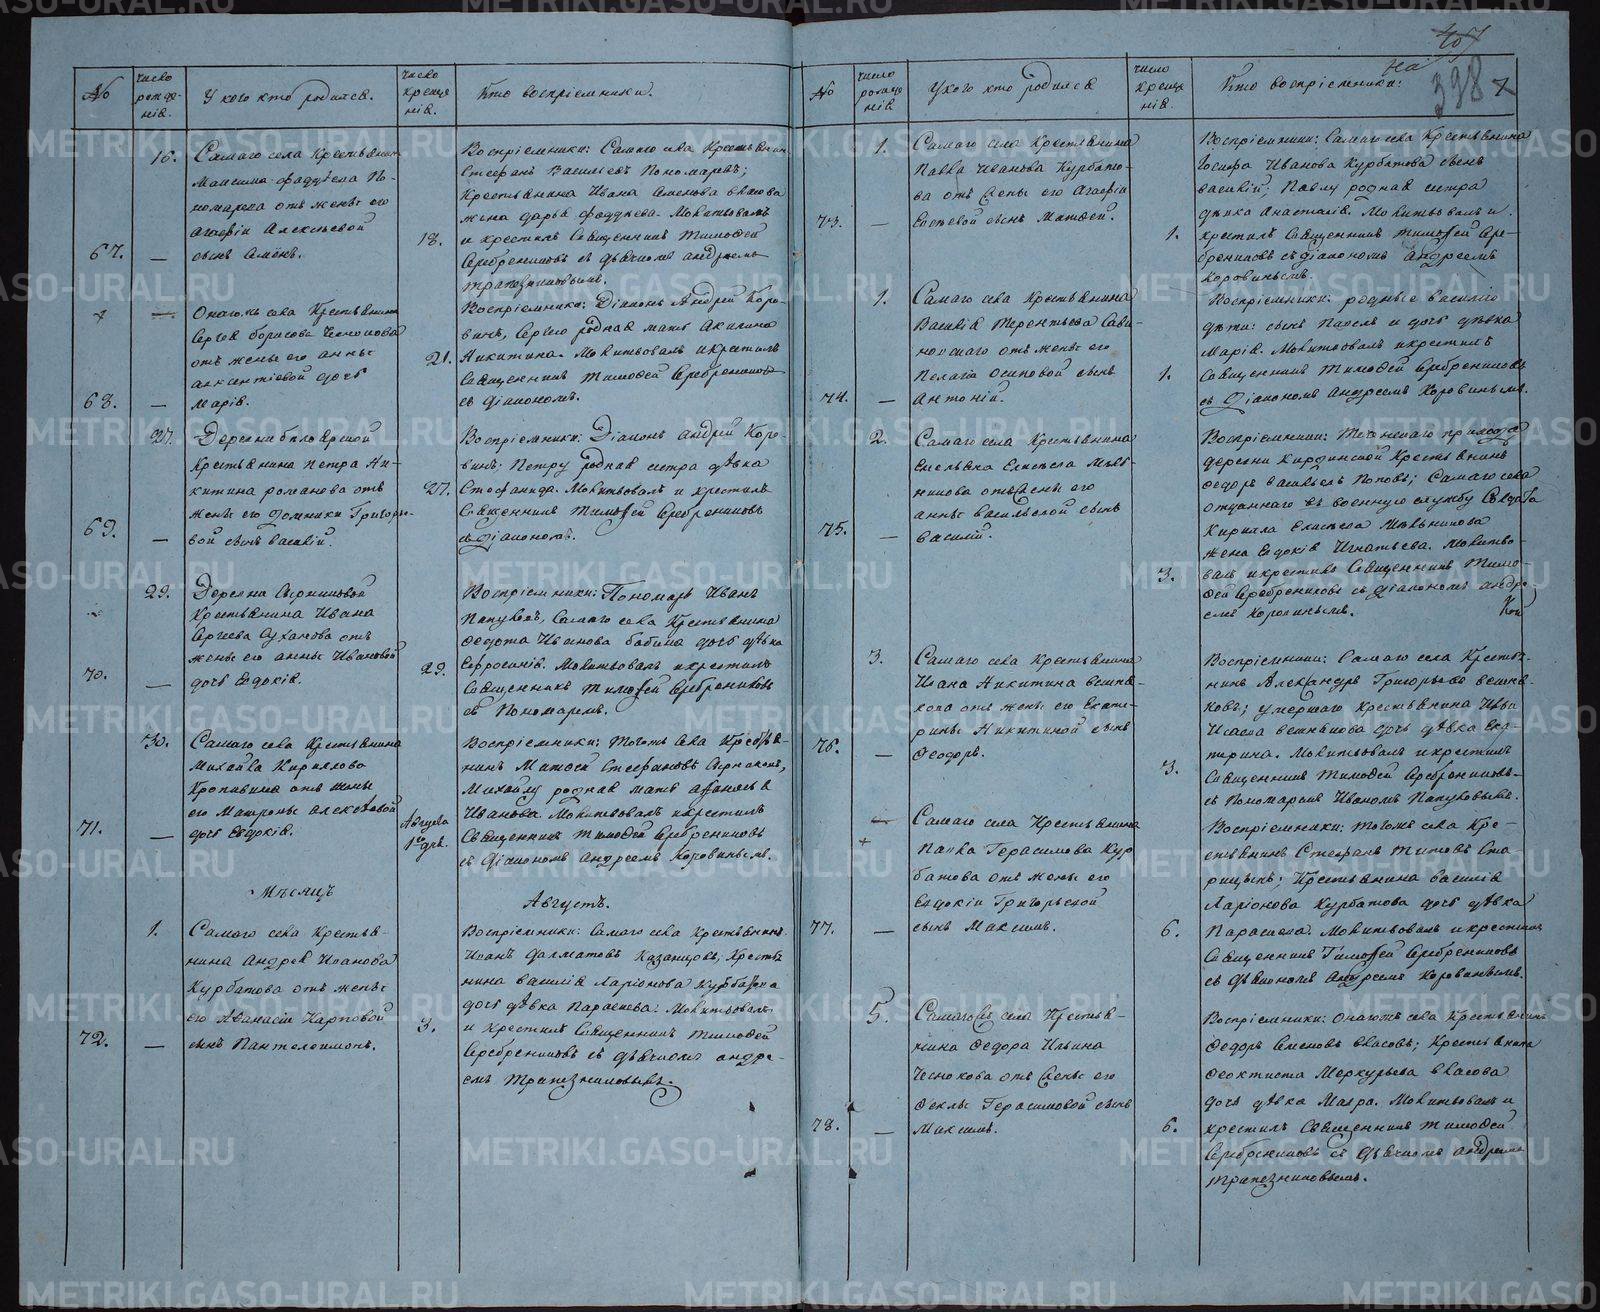 407
на 398
№
число рожде-нія.
У кого кто родился.
число креще нія.
Кто воспріемники.
16.
Самаго села Крестьянина
Максима Фаддѣева По-
номарева отъ жены его
Агафіи Алексѣевой
67. — сынъ Симеонъ.
18.
Воспріемники: Самаго села Крестьянинъ
Стефанъ Васильевъ Пономаревъ;
Крестьянина Ивана Власова
жена Дарья Фаддѣева. Молитвовалъ
и крестилъ Священникъ Тимофей
Серебренниковъ съ дьячкомъ Андреемъ
Трапезниковымъ.
Онагожъ села Крестьянина
Сергея Борисова Чеснокова
отъ жены его Анны
Авксентіевой дочь
68. — Марія.
21.
Воспріемники: Діаконъ Андрей Коро-
винъ, Сергею родная мать Акилина
Никитина. Молитвовалъ и крестилъ
Священникъ Тимофей Серебренниковъ
съ Діакономъ.
27.
Деревни Белоярской
Крестьянина Петра Ни-
китина Романова отъ
жены его Домники Григорь-
69. — вой сынъ Василій.
27.
Воспріемники: Діаконъ Андрей Коро-
винъ; Петру родная сестра дѣвка
Стефанида. Молитвовалъ и крестилъ
Священникъ Тимофей Серебренниковъ
съ Діакономъ.
29.
Деревни
Крестьянина Ивана
Сергеева Суханова отъ
жены его Анны Ивановой
70. — дочь Евдокія.
29.
Воспріемники: Пономарь Иванъ
Папуловъ, Самаго села Крестьянина
Федота Иванова Бабина дочь дѣвка
Ефросинія. Молитвовалъ и крестилъ
Священникъ Тимофей Серебренниковъ
съ Пономаремъ.
30.
Самаго села Крестьянина
Михаила Кириллова
Кропивина отъ жены
его Матроны Алексѣевой
71. — дочь Евдокія.
Августа
1го дня.
Воспріемники: Тогожъ села Крестья-
нинъ Матфей Стефановъ
Михаилу родная мать Афанасья
Иванова. Молитвовалъ и крестилъ
Священникъ Тимофей Серебренниковъ
съ Діакономъ Андреемъ Коровинымъ.
Мѣсяцъ
Августъ.
1.
Самаго села Крестья-
нина Андрея Иванова
Курбатова отъ жены
его Афанасіи Карповой
72. — сынъ Пантелеимонъ.
3.
Воспріемники: Самаго села Крестьянинъ
Иванъ Далматовъ Казанцовъ, Кресть-
янина Василія Ларіонова Курбатова
дочь дѣвка Параскева. Молитвовалъ
и крестилъ Священникъ Тимофей
Серебренниковъ съ дьячкомъ Андре-
емъ Трапезниковымъ.
№
число рожде нія.
У кого кто родился
число креще нія.
Кто воспріемники.
1.
Самаго села Крестьянина
Павла Иванова Курбато-
ва отъ жены его Агафіи
73. — сынъ Матфей.
1.
Воспріемники: Самаго села Крестьянина
Іосифа Иванова Курбатова сынъ
Василій; Павлу родная сестра
дѣвка Анастасія. Молитвовалъ и
крестилъ Священникъ Тимофей Сере-
бренниковъ съ Діакономъ Андреемъ
Коровинымъ.
1.
Самаго села Крестьянина
Василія Терентьева Сави-
отъ жены его
Пелагіи Осиповой сынъ
74. — Антоній.
1.
Воспріемники: родные Василію
дѣти: сынъ Павелъ и дочь дѣвка
Марія. Молитвовалъ и крестилъ
Священникъ Тимофей Серебренниковъ
съ Діакономъ Андреемъ Коровинымъ.
2.
Самаго села Крестьянина
Емельяна Елисѣева Мель-
никова отъ жены его
Анны Васильевой сынъ
75. — Василій.
3.
Воспріемники: прихода
деревни Крестьянинъ
Федоръ Васильевъ Поповъ; Самаго села
отданнаго въ военную службу Солдата
Кирилла Елисѣева Мельникова
жена Евдокія Игнатьева. Молитво-
валъ и крестилъ Священникъ Тимо-
фей Серебренниковъ съ Діакономъ Андре-
емъ Коровинымъ.
3.
Самаго села Крестьянина
Ивана Никитина Вешня-
кова отъ жены его Екате-
рины Никитиной сынъ
76. — Феодоръ.
3.
Воспріемники: Самаго села Крестья-
нинъ Александръ Григорьевъ Вешня-
ковъ; умершаго Крестьянина
Исаева Вешнякова дочь дѣвка Ека-
терина. Молитвовалъ и крестилъ
Священникъ Тимофей Серебренниковъ
съ Пономаремъ Иваномъ Папуловымъ.
Самаго села Крестьянина
Павла Герасимова Кур
батова отъ жены его
Евдокіи Григорьевой
77. — сынъ Максимъ.
6.
Воспріемники: Тогожъ села Кре-
стьянинъ Стефанъ Титовъ Ста-
рицынъ; Крестьянина Василія
Ларіонова Курбатова дочь дѣвка
Параскева. Молитвовалъ и крестилъ
Священникъ Тимофей Серебренниковъ
съ Діакономъ Андреемъ Коровинымъ.
5.
Самаго села Крестья-
нина Федора Ильина
Чеснокова отъ жены его
Феклы Герасимовой сынъ
78. — Максимъ.
6.
Воспріемники: Онагожъ села Крестьянинъ
Федоръ Семеновъ Власовъ; Крестьянина
Феоктиста Меркурьева Власова
дочь дѣвка Мавра. Молитвовалъ и
крестилъ Священникъ Тимофей
Серебренниковъ съ дьячкомъ Андреемъ
Трапезниковымъ.
METRIKI.GASO-URAL.RU